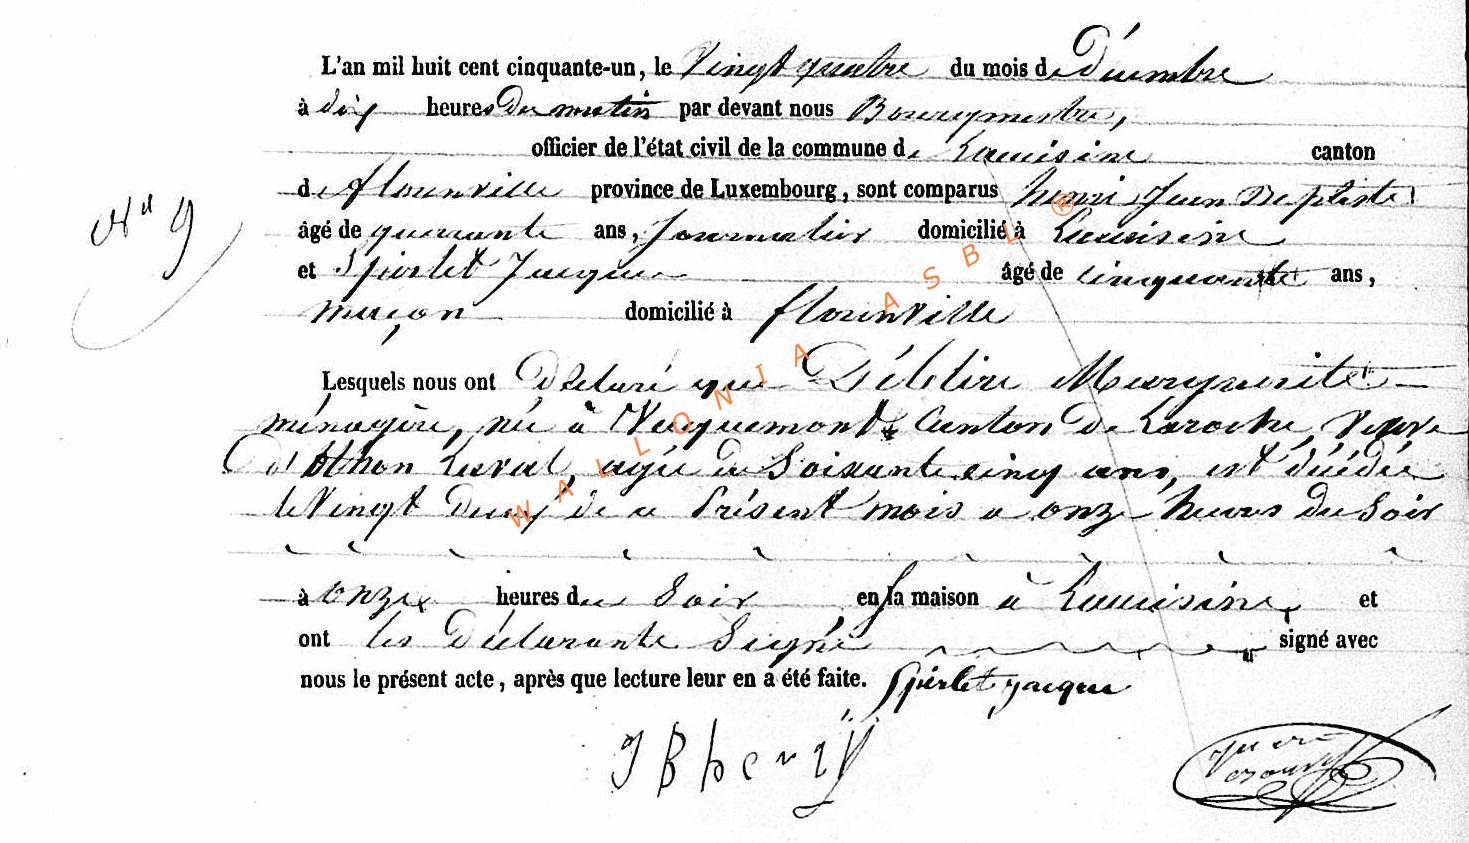 L'an mil huit cent cinquante-un, le Vingt quatre du mois de Décembre
à dix heures Du matin par devant nous Bourgmestre,
officier de l'état civil de la commune de Lacuisine canton
de florenville province de Luxembourg, sont comparus henri Jean Baptiste
N° 9
âgé de quarante ans, Journalier domicilié à Lacuisine
et Spirlet Jacques âgé de cinquante ans,
maçon domicilié à florenville
Lesquels nous ont Déclaré que Marguerite
ménagère, née à Canton De Laroche, Veuve
D'Othon Laval, agée de Soixante cinq ans, est décédée
le Vingt deux de ce Présent mois a onze heures Du Soir
à onze heures du Soir en sa maison à Lacuisine, et
ont les Déclarants Signé signé avec
nous le présent acte, après que lecture leur en a été faite. Spirlet jacques
J B henry
WALLONIA ASBL ®